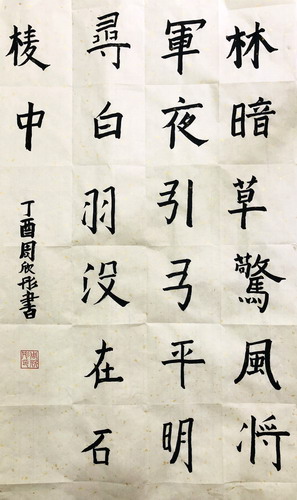 林暗草驚風将
軍夜引弓平明
尋白羽没在石
棱中
丁酉周欣彤書